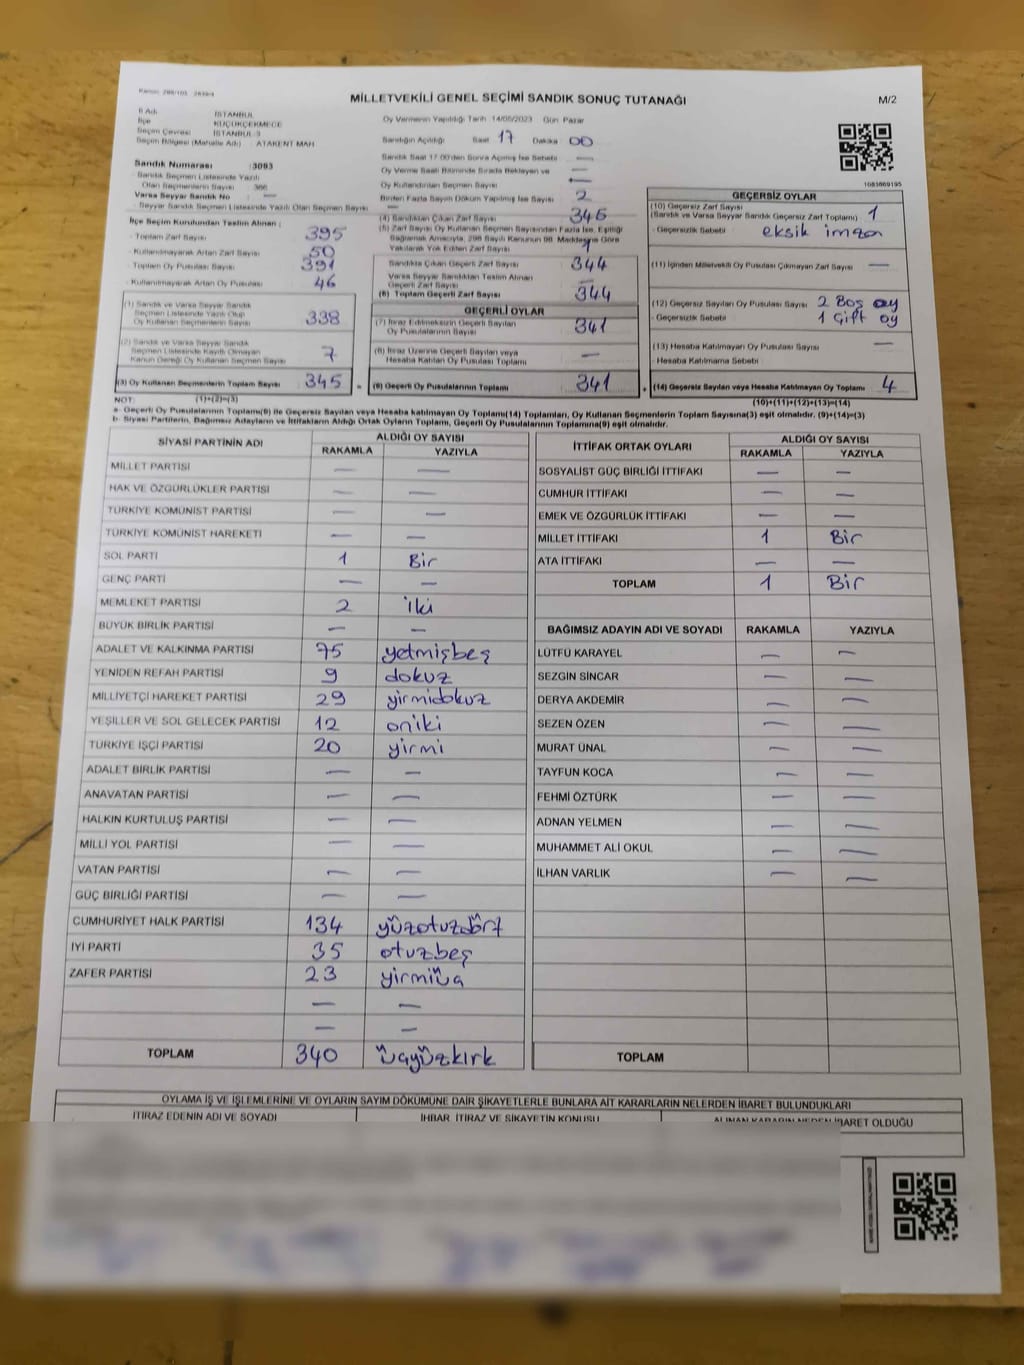 Kanun: 298/105 2839/4
MİLLETVEKİLİ GENEL SEÇİMİ SANDIK SONUÇ TUTANAĞI
M/2
İl Adı : İSTANBUL
İlçe : KÜÇÜKÇEKMECE
Seçim Çevresi : İSTANBUL-3
Seçim Bölgesi (Mahalle Adı) : ATAKENT MAH.
Oy Vermenin Yapıldığı Tarih 14/05/2023 Gün Pazar
Sandığın Açıldığı Saat 17 Dakika 00
Sandık Saat 17.00'den Sonra Açılmış İse Sebebi —
Oy Verme Saati Bitiminde Sırada Bekleyen ve
Oy Kullandırılan Seçmen Sayısı —
Birden Fazla Sayım Döküm Yapılmış İse Sayısı 2
Sandık Numarası : 3093
Sandık Seçmen Listesinde Yazılı
Olan Seçmenlerin Sayısı : 386
Varsa Seyyar Sandık No : —
Seyyar Sandık Seçmen Listesinde Yazılı Olan Seçmen Sayısı —
İlçe Seçim Kurulundan Teslim Alınan :
Toplam Zarf Sayısı 395
Kullanılmayarak Artan Zarf Sayısı 50
Toplam Oy Pusulası Sayısı 391
Kullanılmayarak Artan Oy Pusulası 46
(1) Sandık ve Varsa Seyyar Sandık
Seçmen Listesinde Yazılı Olup
Oy Kullanan Seçmenlerin Sayısı 338
(2) Sandık ve Varsa Seyyar Sandık
Seçmen Listesinde Kayıtlı Olmayan
Kanun Gereği Oy Kullanan Seçmen Sayısı 7
(3) Oy Kullanan Seçmenlerin Toplam Sayısı 345
(4) Sandıktan Çıkan Zarf Sayısı 346
(5) Zarf Sayısı Oy Kullanan Seçmen Sayısından Fazla İse, Eşitliği
Sağlamak Amacıyla, 298 Sayılı Kanunun 98. Maddesine Göre
Yakılarak Yok Edilen Zarf Sayısı 1
Sandıkta Çıkan Geçerli Zarf Sayısı 344
Varsa Seyyar Sandıktan Teslim Alınan
Geçerli Zarf Sayısı —
(6) Toplam Geçerli Zarf Sayısı 344
GEÇERLİ OYLAR
(7) İtiraz Edilmeksizin Geçerli Sayılan
Oy Pusulalarının Sayısı 341
(8) İtiraz Üzerine Geçerli Sayılan veya
Hesaba Katılan Oy Pusulası Toplamı —
(9) Geçerli Oy Pusulalarının Toplamı 341
1083869195
GEÇERSİZ OYLAR
(10) Geçersiz Zarf Sayısı
(Sandık ve Varsa Seyyar Sandık Geçersiz Zarf Toplamı) 1
- Geçersizlik Sebebi : eksik imza
(11) İçinden Milletvekili Oy Pusulası Çıkmayan Zarf Sayısı —
(12) Geçersiz Sayılan Oy Pusulası Sayısı 2 Boş oy
- Geçersizlik Sebebi : 1 Çift oy
(13) Hesaba Katılmayan Oy Pusulası Sayısı —
- Hesaba Katılmama Sebebi :
(14) Geçersiz Sayılan veya Hesaba Katılmayan Oy Toplamı 4
NOT: (1)+(2)=(3)
(10)+(11)+(12)+(13)=(14)
a- Geçerli Oy Pusulalarının Toplamı(9) ile Geçersiz Sayılan veya Hesaba katılmayan Oy Toplamı(14) Toplamları, Oy Kullanan Seçmenlerin Toplam Sayısına(3) eşit olmalıdır. (9)+(14)=(3)
b- Siyasi Partilerin, Bağımsız Adayların ve İttifakların Aldığı Ortak Oyların Toplamı, Geçerli Oy Pusulalarının Toplamına(9) eşit olmalıdır.
SİYASİ PARTİNİN ADI ALDIĞI OY SAYISI
RAKAMLA YAZIYLA
MİLLET PARTİSİ — —
HAK VE ÖZGÜRLÜKLER PARTİSİ — —
TÜRKİYE KOMÜNİST PARTİSİ — —
TÜRKİYE KOMÜNİST HAREKETİ — —
SOL PARTİ 1 Bir
GENÇ PARTİ — —
MEMLEKET PARTİSİ 2 iki
BÜYÜK BİRLİK PARTİSİ — —
ADALET VE KALKINMA PARTİSİ 75 yetmişbeş
YENİDEN REFAH PARTİSİ 9 dokuz
MİLLİYETÇİ HAREKET PARTİSİ 29 yirmidokuz
YEŞİLLER VE SOL GELECEK PARTİSİ 12 oniki
TÜRKİYE İŞÇİ PARTİSİ 20 yirmi
ADALET BİRLİK PARTİSİ — —
ANAVATAN PARTİSİ — —
HALKIN KURTULUŞ PARTİSİ — —
MİLLİ YOL PARTİSİ — —
VATAN PARTİSİ — —
GÜÇ BİRLİĞİ PARTİSİ — —
CUMHURİYET HALK PARTİSİ 134 yüzotuzdört
İYİ PARTİ 35 otuzbeş
ZAFER PARTİSİ 23 yirmiüç
— —
— —
TOPLAM 340 üçyüzkırk
İTTİFAK ORTAK OYLARI ALDIĞI OY SAYISI
RAKAMLA YAZIYLA
SOSYALİST GÜÇ BİRLİĞİ İTTİFAKI — —
CUMHUR İTTİFAKI — —
EMEK VE ÖZGÜRLÜK İTTİFAKI — —
MİLLET İTTİFAKI 1 Bir
ATA İTTİFAKI — —
TOPLAM 1 Bir
BAĞIMSIZ ADAYIN ADI VE SOYADI RAKAMLA YAZIYLA
LÜTFÜ KARAYEL — —
SEZGİN SİNCAR — —
DERYA AKDEMİR — —
SEZEN ÖZEN — —
MURAT ÜNAL — —
TAYFUN KOCA — —
FEHMİ ÖZTÜRK — —
ADNAN YELMEN — —
MUHAMMET ALİ OKUL — —
İLHAN VARLIK — —
TOPLAM
OYLAMA İŞ VE İŞLEMLERİNE VE OYLARIN SAYIM DÖKÜMÜNE DAİR ŞİKAYETLERLE BUNLARA AİT KARARLARIN NELERDEN İBARET BULUNDUKLARI
İTİRAZ EDENİN ADI VE SOYADI İHBAR, İTİRAZ VE ŞİKAYETİN KONUSU ALINAN KARARIN NEDEN İBARET OLDUĞU